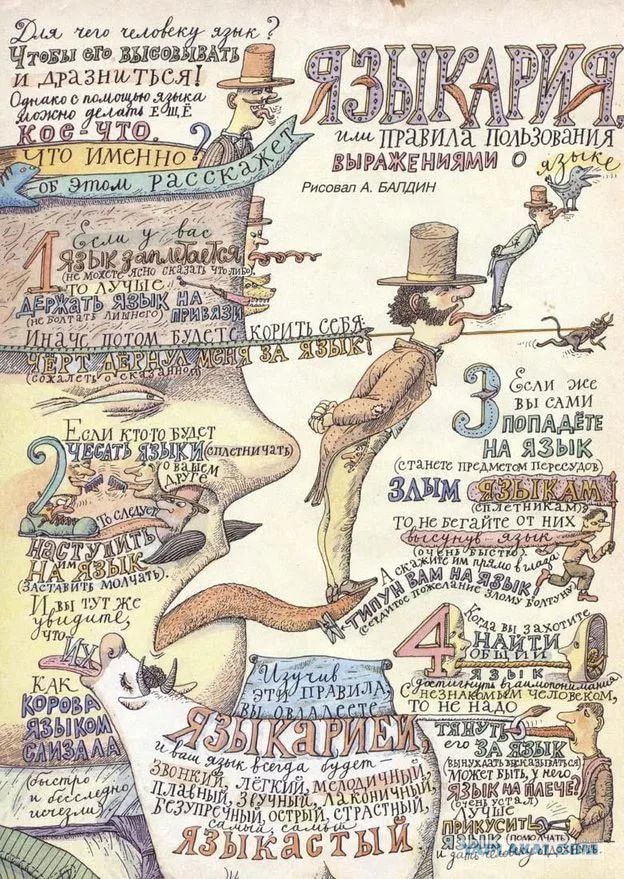 Для чего человеку язык?
Чтобы его высовывать
и дразниться!
Однако с помощью языка
можно делать ещё
кое-что.
Что именно?
об этом расскажет
ЯЗЫКАРИЯ,
или правила пользования
выражениями о
языке
Рисовал А. БАЛДИН
1 Если у вас
язык заплетается
(не можете ясно сказать что-либо),
то лучше
держать язык на
привязи
(не болтать лишнего)
Иначе потом будете корить себя:
чёрт дёрнул меня за язык!
(сожалеть о сказанном)
2 Если кто-то будет
чесать языки (сплетничать)
о вашем
друге
то следует
наступить
им
на язык
(заставить молчать).
И вы тут же
увидите,
что
их
как
корова
языком
слизала
(быстро
и бесследно
исчезли)
3 Если же
вы сами
попадёте
на язык
(станете предметом пересудов)
злым языкам
(сплетникам),
то не бегайте от них
высунув язык
(очень быстро),
А скажите им прямо в глаза
типун вам на язык!
(сердитое пожелание злому болтуну)
4 Когда вы захотите
найти
общий
язык
(достигнуть взаимопонимания)
с незнакомым человеком,
то не надо
тянуть
его за язык
(вынуждать высказываться)
Может быть, у него
язык на плече?
(очень устал)
Лучше
прикусить
язык (помолчать)
и дать человеку
Изучив
эти правила,
вы овладеете
Языкарией,
и ваш язык всегда будет —
звонкий, лёгкий, мелодичный,
плавный, звучный, лаконичный,
безупречный, острый, страстный,
самый, самый
языкастый